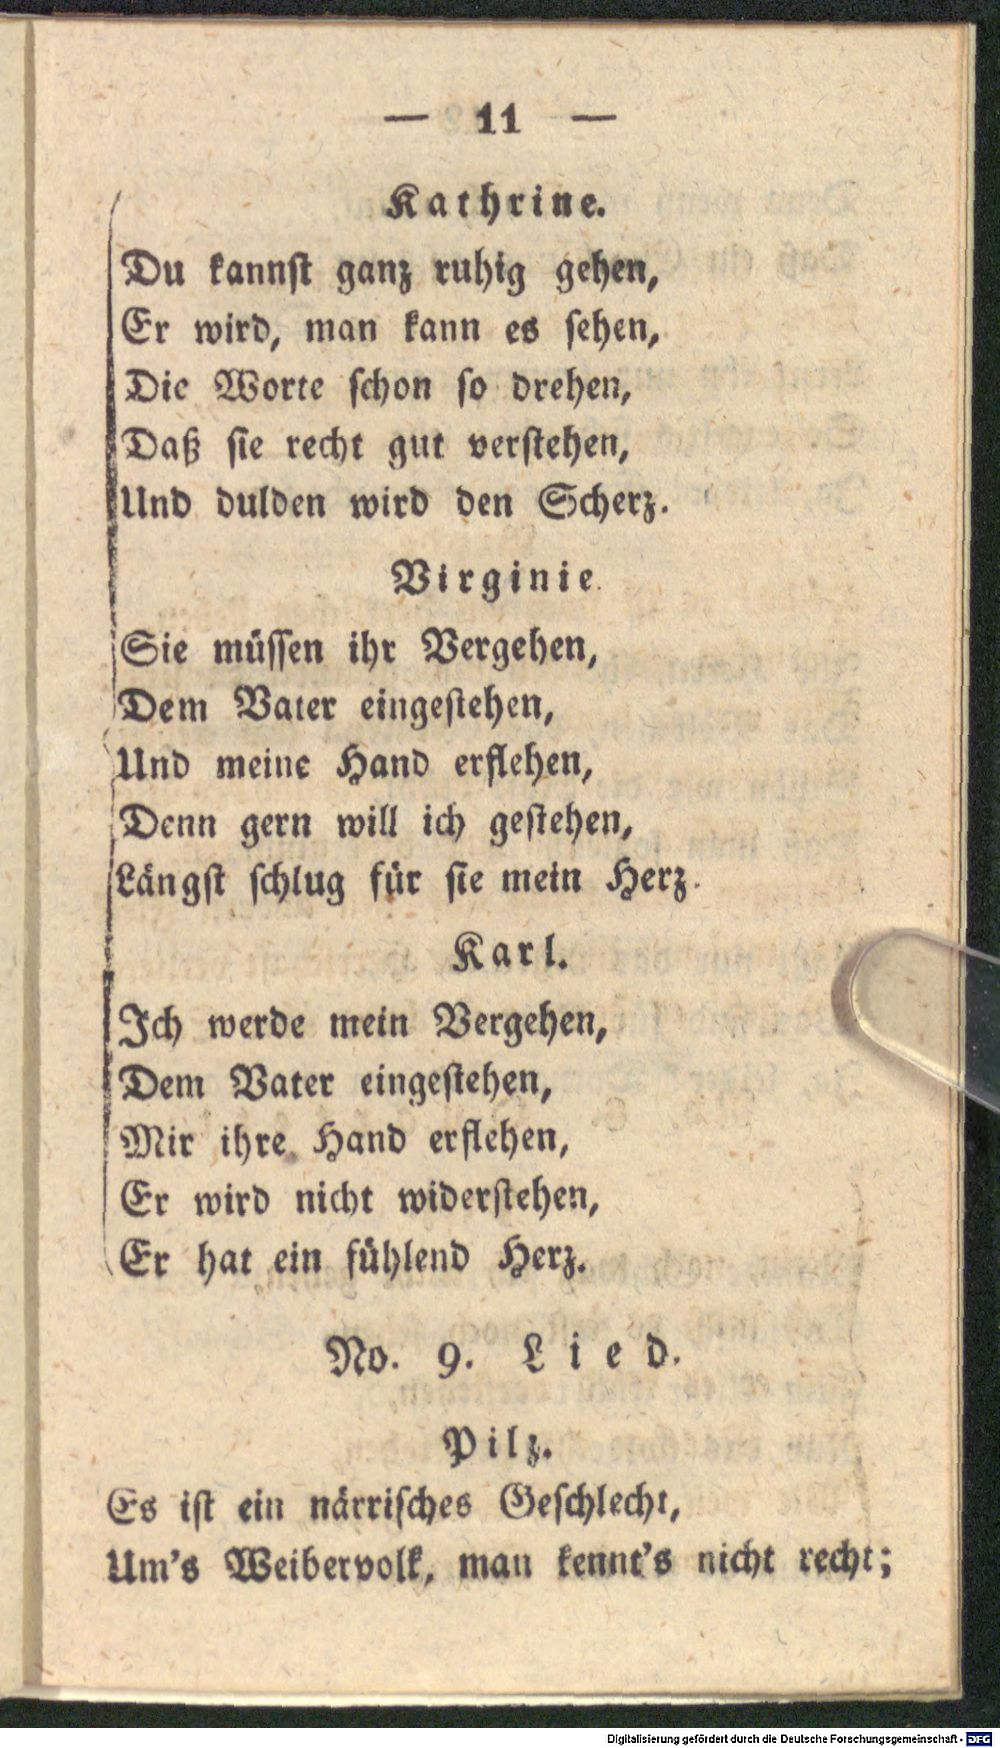 — 11 —
Kathrine.
Du kannst ganz ruhig gehen,
Er wird, man kann es sehen,
Die Worte schon so drehen,
Daß sie recht gut verstehen,
Und dulden wird den Scherz.
Virginie.
Sie müssen ihr Vergehen,
Dem Vater eingestehen,
Und meine Hand erflehen,
Denn gern will ich gestehen,
Längst schlug für sie mein Herz.
Karl.
Ich werde mein Vergehen,
Dem Vater eingestehen,
Mir ihre Hand erflehen,
Er wird nicht widerstehen,
Er hat ein fühlend Herz.
No. 9. Lied.
Pilz.
Es ist ein närrisches Geschlecht,
Um's Weibervolk, man kennt's nicht recht;
Digitalisierung gefördert durch die Deutsche Forschungsgemeinschaft - DFG